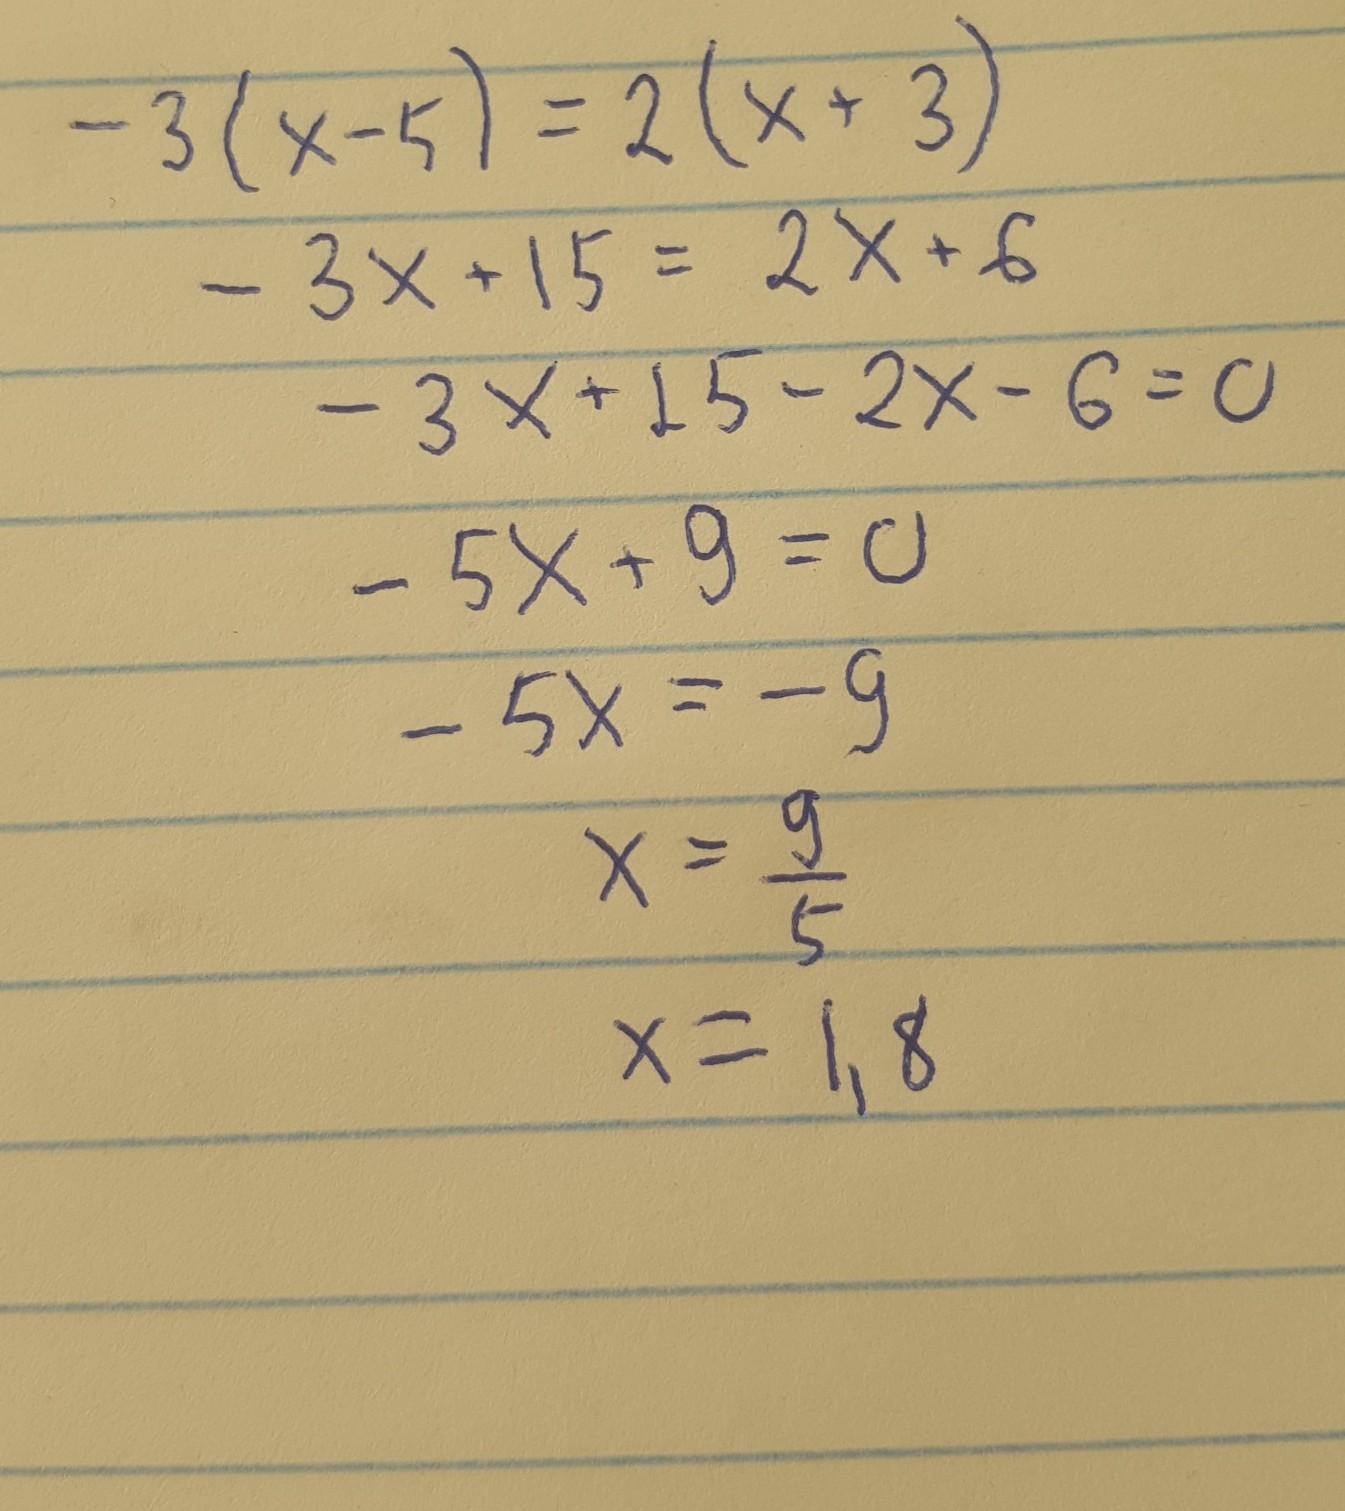 -3(x-5)=2(x+3)
-3x+15=2x+6
-3x+15-2x-6=0
-5x+9=0
-5x=-9
x=9/5
x=1,8